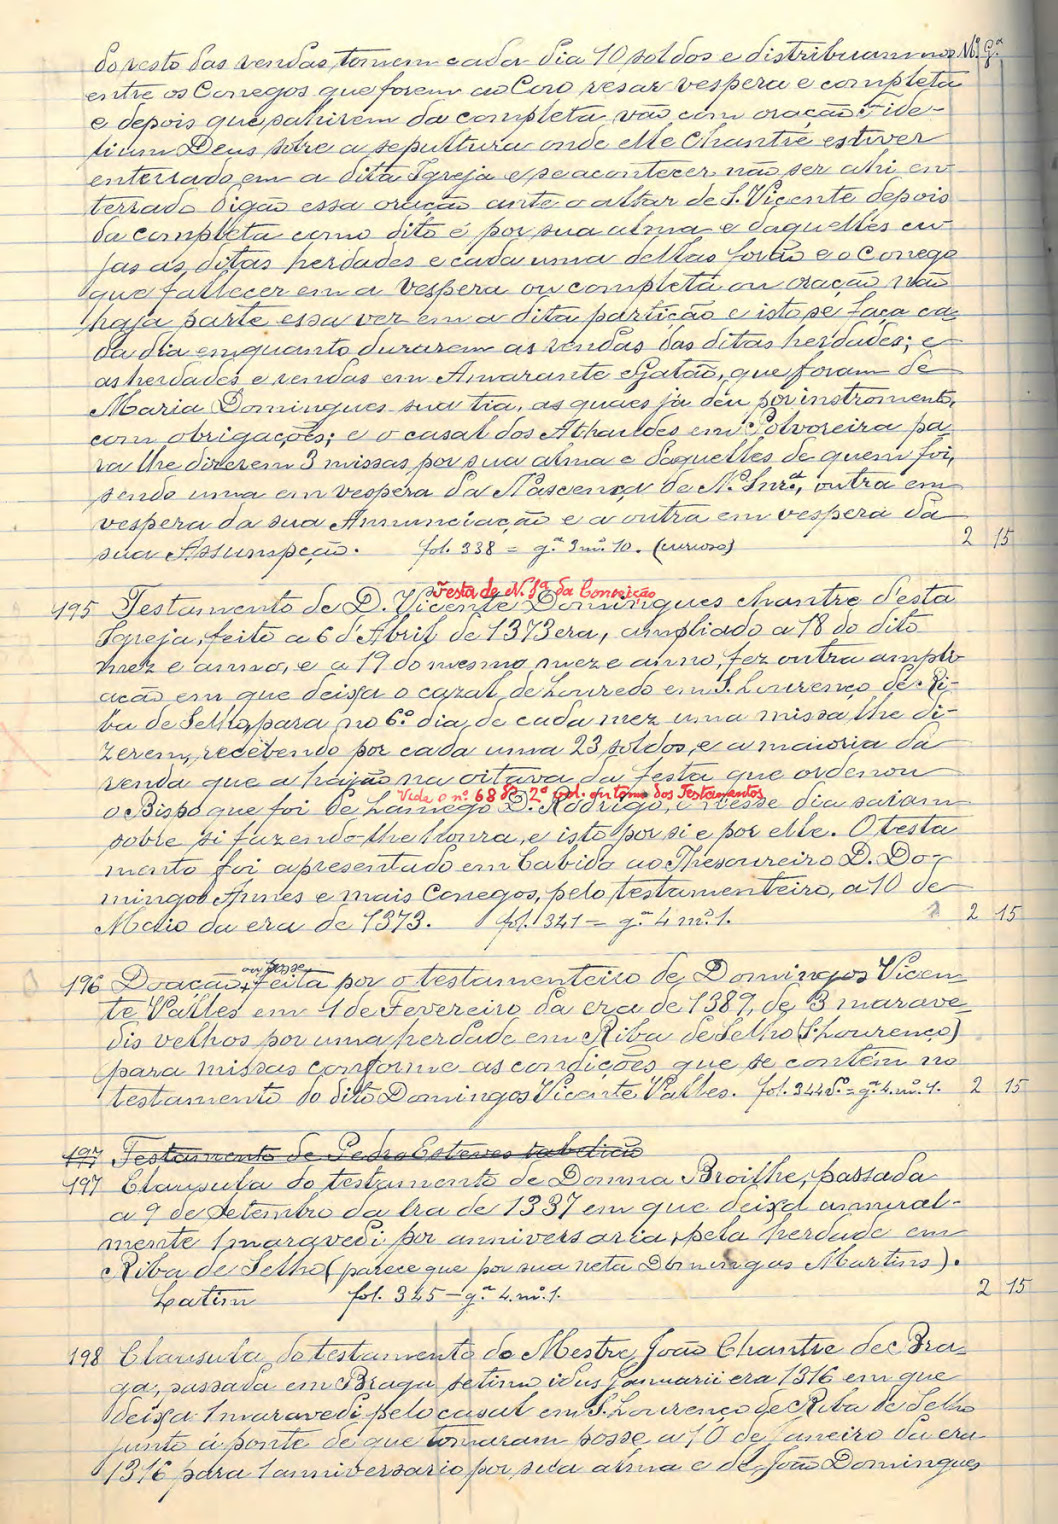 do resto das rendas, tomem cada dia 10 soldos e distribuam-nos Mº Gª
entre os Conegos que forem ao Coro resar vespera e completa
e depois que sahirem da completa vão com oração Fide-
lium Deus sobre a sepultura onde elle Chantre estiver
enterrado em a dita Igreja e se acontecer não ser ahi en-
terrado digão essa oração ante o altar de S. Vicente depois
da completa como dito é por sua alma e daquelles cu-
jas as ditas herdades e cada uma dellas forão e o Conego
que fallecer em a vespera ou completa ou oração não
haja parte essa vez em a dita partição e isto se faça ca-
da dia emquanto durarem as rendas das ditas herdades; e
as herdades e rendas em Amarante e Gatão, que foram de
Maria Domingues sua tia, as quaes já deu por instromento,
com obrigações; e o casal dos Athaudes em Polvoreira pa-
ra lhe dizerem 3 missas por sua alma e daquelles de quem foi,
sendo uma em vespera da Nascença de N. Snrª, outra em
vespera da sua Annunciação e a outra em vespera da
sua Assumpção. fol. 338 = gª 3 mº 10. (curioso) 2 15
Festa de N. Sª da Conceição
195 Testamento de D. Vicente Domingues chantre d'esta
Igreja, feito a 6 d'Abril de 1373 era, ampliado a 18 do dito
mez e anno, e a 19 do mesmo mez e anno, fez outra ampli-
ação em que deixa o cazal de Louredo em S. Lourenço de Ri-
ba de Selho, para no 6º dia de cada mez uma missa lhe di-
zerem, recebendo por cada uma 23 soldos, e a maioria da
renda que a hajão na oitava da festa que ordenou
Vide o nº 68 do 2º vol. ou tomo dos Testamentos
o Bispo que foi de Lamego D. Rodrigo, e n'esse dia saiam
sobre si fazendo-lhe honra, e isto por si e por elle. O testa
mento foi apresentado em Cabido ao Thesoureiro D. Do-
mingos Annes e mais Conegos, pelo testamenteiro, a 10 de
Maio da era de 1373. fol. 341 = gª 4 mº 1. 2 15
ou posse,
196 Doação, feita por o testamenteiro de Domingos Vicen-
te Valles em 1 de Fevereiro da era de 1389, de 3 marave-
dis velhos por uma herdade em Riba de Selho (S. Lourenço)
para missas conforme as condições que se contém no
testamento do dito Domingos Vicente Valles. fol. 344 vº = gª 4 mº 1. 2 15
197 Testamento de Pedro Esteves tabelião
197 Clausula do testamento de Domna Broilhe, passada
a 9 de Setembro da Era de 1337 em que deixa annual-
mente 1 maravedi por anniversaria, pela herdade em
Riba de Selho (parece que por sua neta Domingas Martins).
Latim fol. 345 = gª 4 mº 1. 2 15
198 Clausula do testamento do Mestre João Chantre de Bra-
ga, passada em Braga setimo idus Januarii era 1316 em que
deixa 1 maravedi pelo casal em S. Lourenço de Riba de Selho
junto á ponte de que tomaram posse a 10 de Janeiro da era
1316 para 1 anniversario por sua alma e de João Domingues